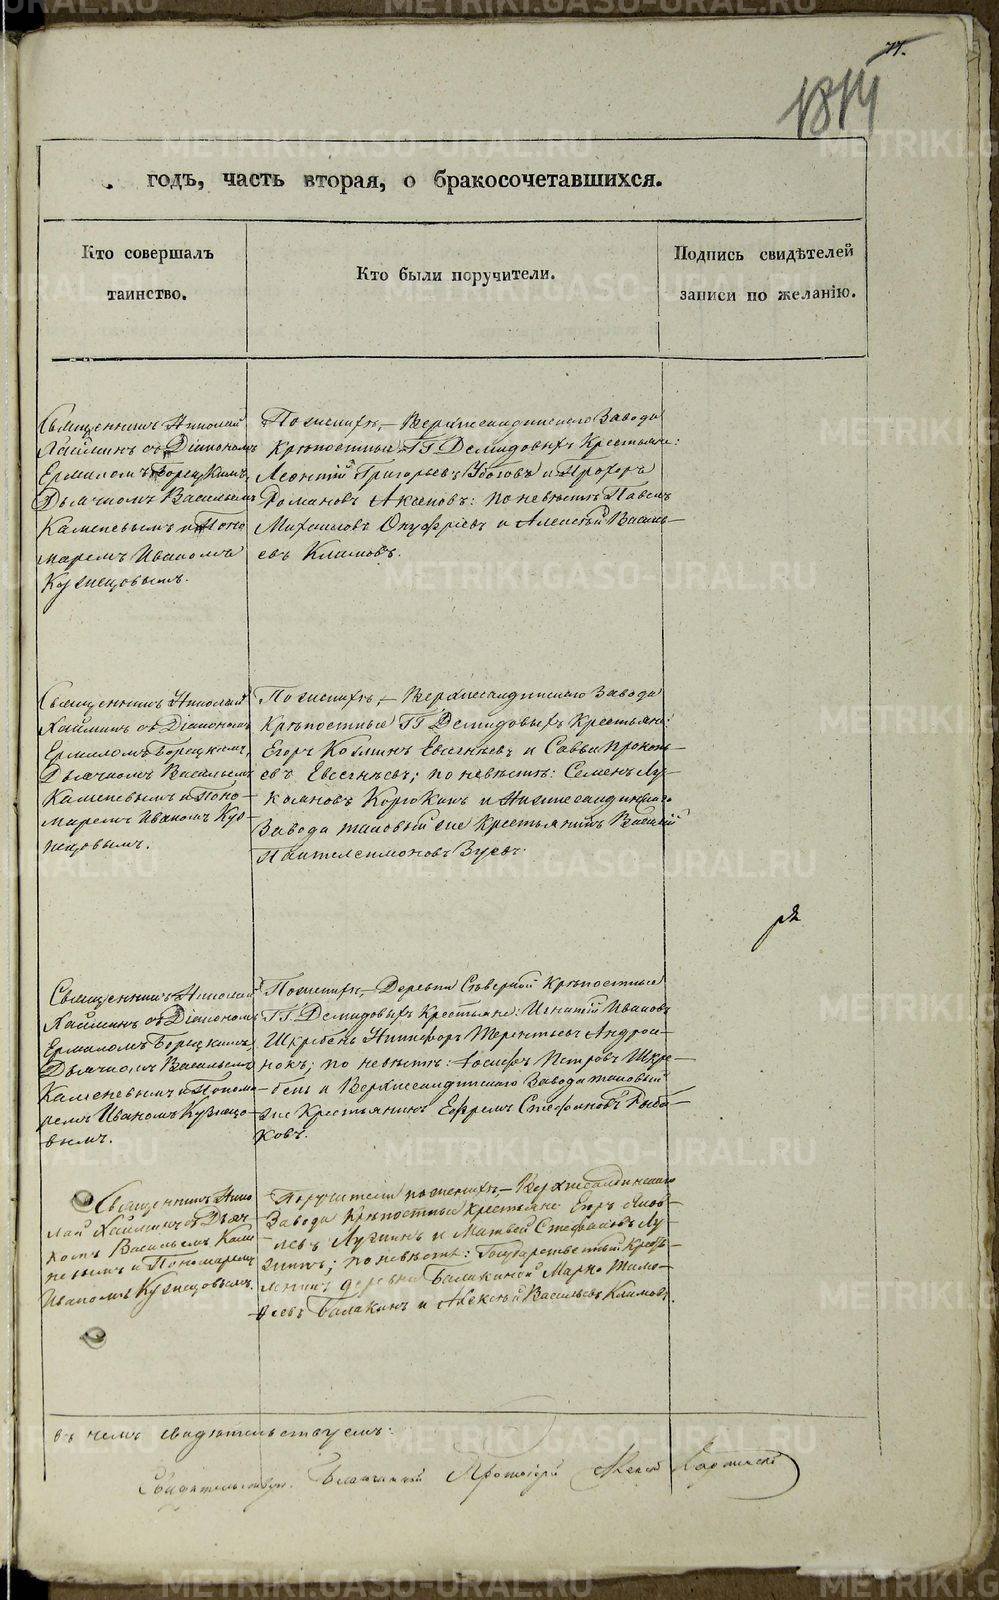 77.
1814
годъ, часть вторая, о бракосочетавшихся.
Кто совершалъ
таинство.
Кто были поручители.
Подпись свидѣтелей
записи по желанію.
Священникъ Николай
Хайминъ съ Діакономъ
Ермиломъ Борецкимъ,
Дьячкомъ Васильемъ
Каменевымъ и Поно
маремъ Иваномъ
Кузнецовымъ.
По женихѣ, – Верхнесалдинскаго Завода
Крѣпостные ГГ. Демидовыхъ Крестьяне:
Леонтій Григорьевъ Убоговъ и Прохоръ
Романовъ Аксеновъ: по невѣстѣ Павелъ
Михаиловъ Онуфріевъ и Алексѣй Василь–
евъ Климовъ.
Священникъ Николай
Хайминъ съ Діакономъ
Ермиломъ Борецкимъ,
Дьячкомъ Васильемъ
Каменевымъ и Поно–
маремъ Иваномъ Куз
нецовымъ.
По женихѣ, – Верхнесалдинскаго Завода
Крѣпостные ГГ. Демидовыхъ Крестьяне:
Егоръ Козминъ Евсегнѣевъ и Савва Прокопь–
евъ Евсегнѣевъ; по невѣстѣ: Семенъ Лу–
кояновъ Корюкинъ и Нижнесалдинскаго
Завода таковый же Крестьянинъ Василій
Пантелеимоновъ Зуевъ.
Священникъ Николай
Хайминъ съ Діакономъ
Ермиломъ Борецкимъ,
Дьячкомъ Васильемъ
Каменевымъ и Понома
ремъ Иваномъ Кузнецо–
вымъ.
По женихѣ, – Деревни Сѣверной Крѣпостные
ГГ. Демидовыхъ Крестьяне: Игнатій Ивановъ
Шкребень, Никифоръ Терентьевъ Андрое–
нокъ; по невѣстѣ: Іосифъ Петровъ Шкре–
бень и Верхнесалдинскаго Завода таковый
же Крестьянинъ Ефремъ Стефановъ Рыба–
ковъ.
Священникъ Нико
лай Хайминъ съ Дьяч
комъ Васильемъ Каме
невымъ и Пономаремъ
Иваномъ Кузнецовымъ.
Поручители по женихѣ, – Верхнесалдинскаго
Завода Крѣпостные Крестьяне Егоръ Яков–
левъ Лугинъ и Матвей Стефановъ Лу–
гинъ; по невѣстѣ: Государственный Кресть–
янинъ деревни Балакиной Марко Тимо–
ѳеевъ Балакинъ и Алексѣй Васильевъ Климовъ.
въ чемъ свидѣтельствуемъ:
Свидѣтельствую. Благочинный Протоіерей
METRIKI.GASO-URAL.RU